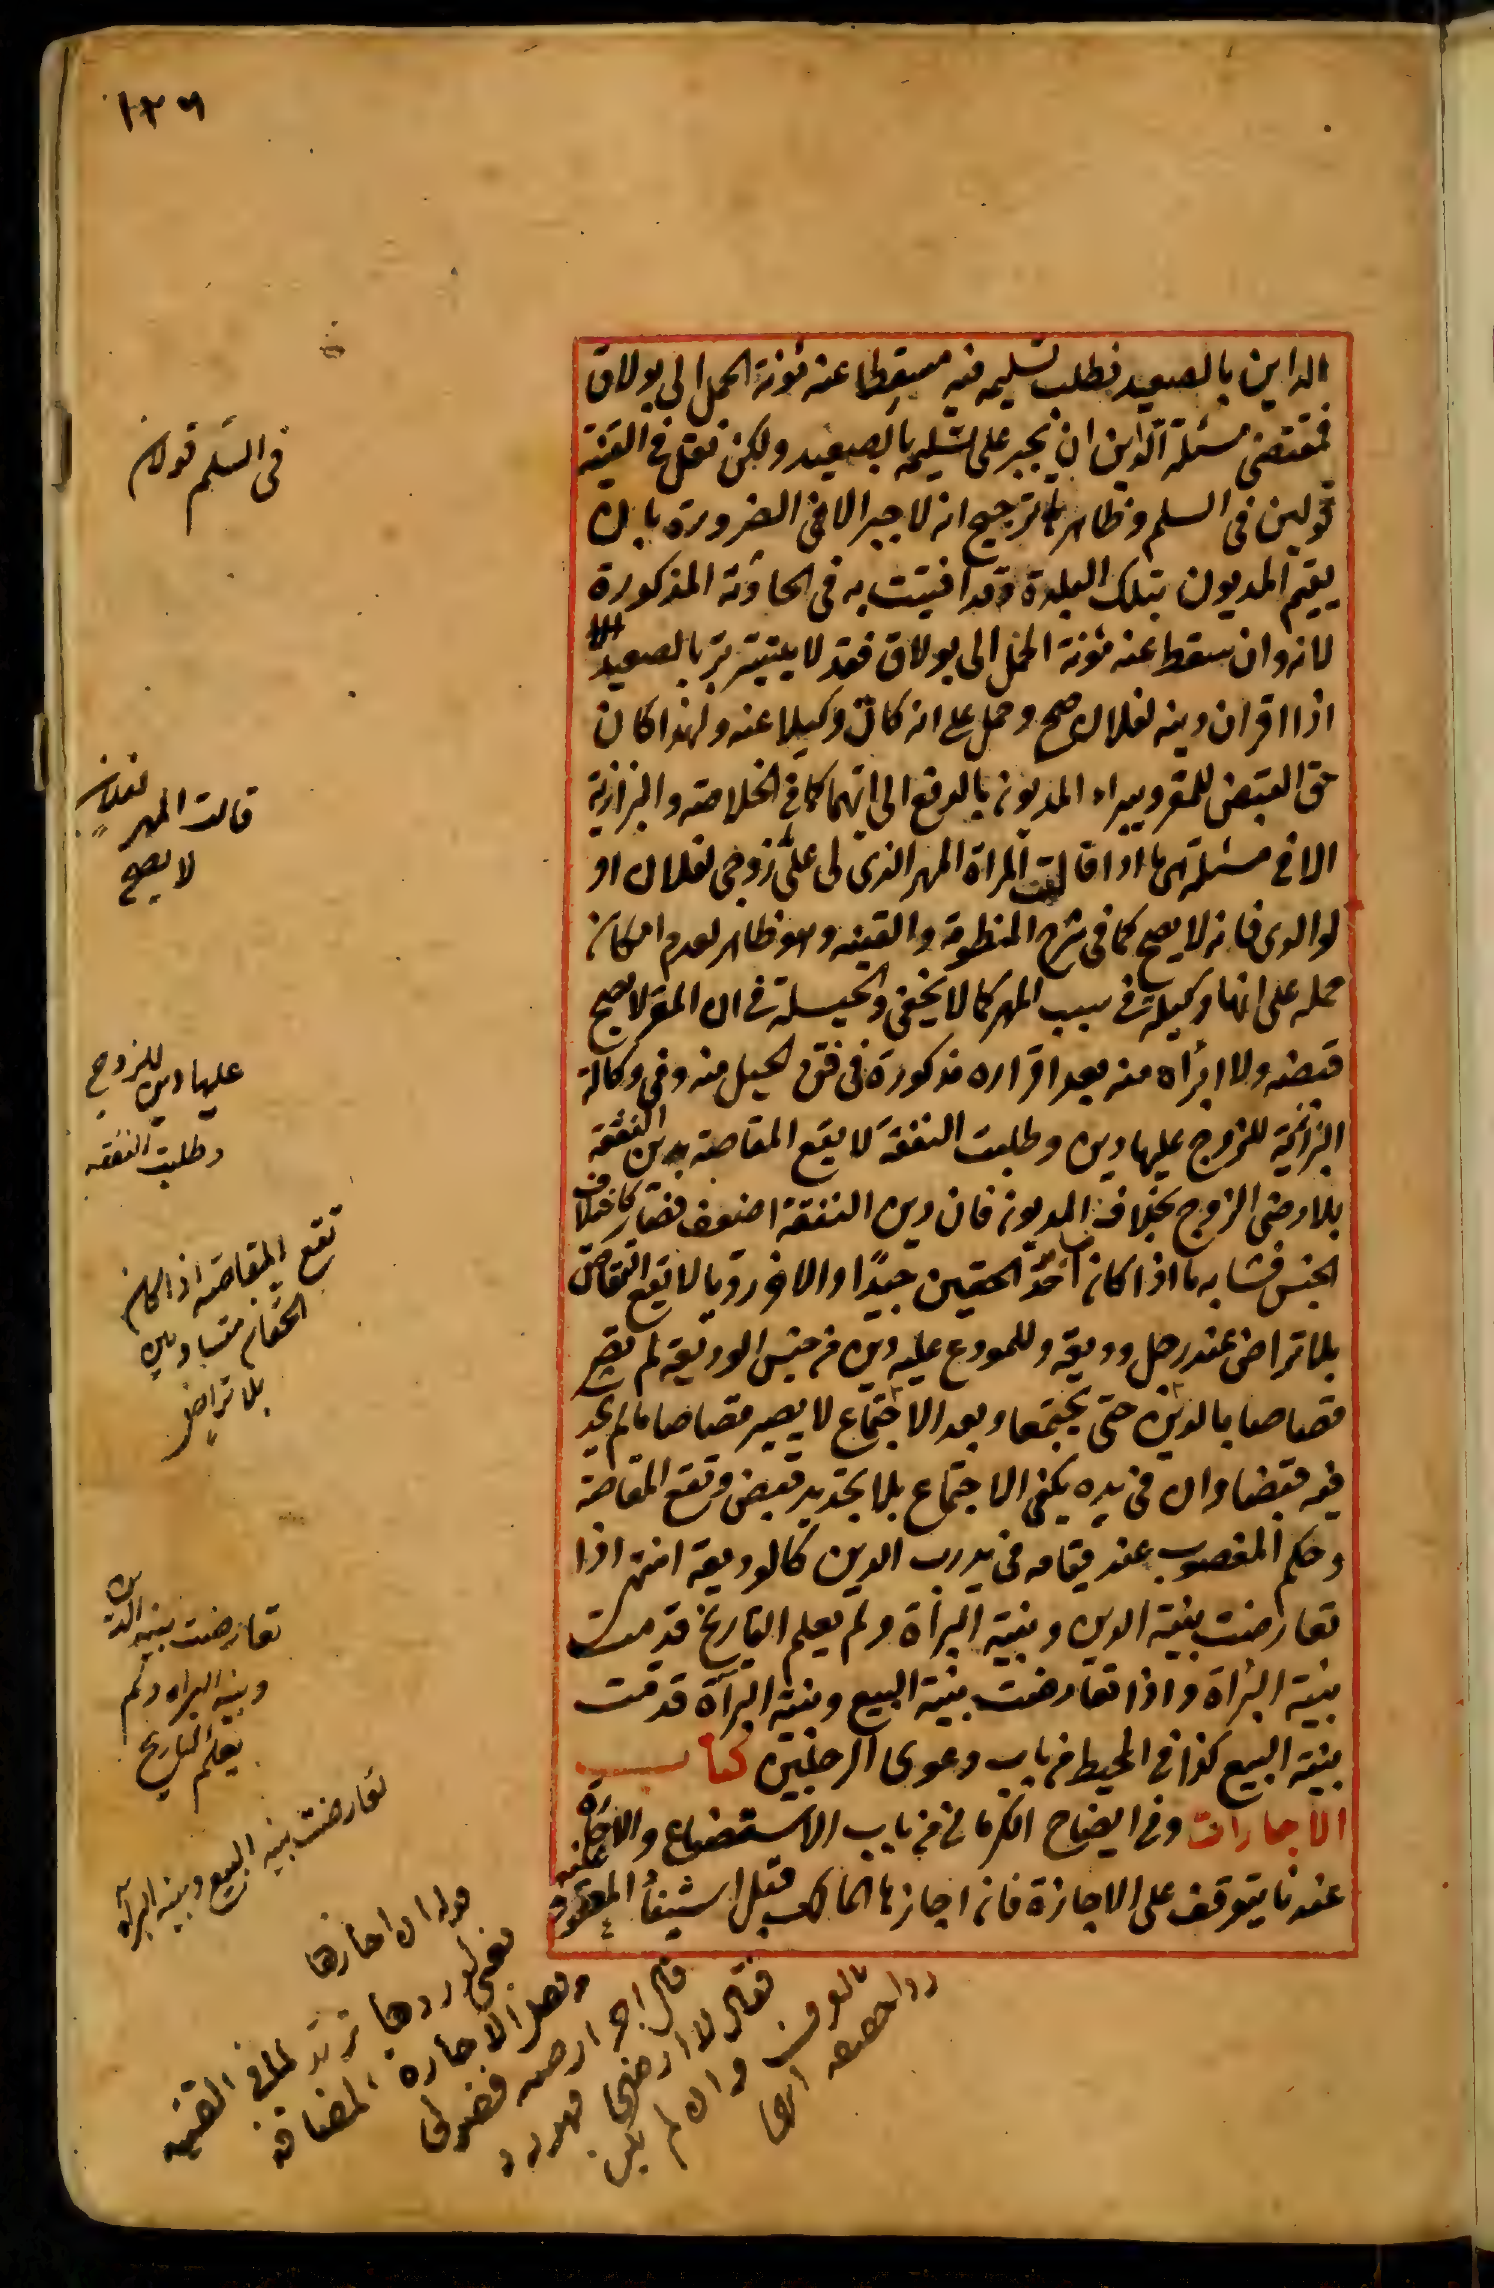 ١٢٦
الداين بالصعيد فطلب تسليمه فيه مسقطا عنه مؤنة الحمل الى بولاق
فمقتضى مسئلة الداين ان يجبر على تسليمه بالصعيد ولكن نقل في القنية
قولين في السلم وظاهرهما ترجيح انه لا جبر الا في الضرورة بان
يقيم المديون بتلك البلدة وقد افتيت به في الحادثة المذكورة
لانه وان سقط عنه مؤنة الحمل الى بولاق فقد لا يتيسر بر بالصعيد
اذا اقر ان دينه لفلان صح وحمل على انه كان وكيلا عنه ولهذا كان
حق القبض للمقر ويبراء المديون بالدفع الى ايهما كما في الخلاصة والبزازية
الا في مسئلة هي ما اذا قالت المراة المهر الذي لي على زوجي لفلان او
لوالدي فانه لا يصح كما في شرح المنظومة والقنية وهو ظاهر لعدم امكان
حمله على انها وكيلة في سبب المهر كما لا يخفى والحيلة في ان المقر لا يصح
قبضه ولا ابرأه منه بعد اقراره مذكورة في فن الحيل منه وفي وكالة
البزازية للزوج عليها دين وطلبت النفقة لا يقع المقاصة بدين النفقة
بلا رضى الزوج بخلاف المديون فان دين النفقة اضعف فصار كاختلاف
الجنس فشابه ما اذا كان احد الحقين جيدا والاخر رديا لا يقع التقاص
بلا تراض عند رجل وديعة وللمودع عليه دين من جنس الوديعة لم تصر
قصاصا بالدين حتى يجتمعا وبعد الاجتماع لا يصير قصاصا ما لم يحد
فيه قبضا وان في يده يكفي الاجتماع بلا تجديد قبض وتقع المقاصة
وحكم المغصوب عند قيامه في يد رب الدين كالوديعة انتهى اذا
تعارضت بينة الدين وبينة البرأة ولم يعلم التاريخ قدمت
بينة البرأة واذا تعارضت بينة البيع وبينة البرأة قدمت
بينة البيع كذا في المحيط من باب دعوى الرجلين كتاب
الاجارات وفي ايضاح الكرماني من باب الاستصناع والاجارة
عندنا يتوقف على الاجازة فان اجازها المالك قبل استيفاء المعقود عليه
في السلم قولان
قالت المهر لفلان
لا يصح
عليها دين للزوج
وطلبت النفقه
تقع المقاصه اذا كان
الحقان متساويين
بلا تراض
تعارضت بينه الدين
وبينه البراه ولم
يعلم التاريخ
تعارضت بينه البيع وبينه البرأة
اجازها
ردها ترتد القنيه
الاجارة المضافه
قال اجر ارضه فضولى
فقال لا ارضى
وان لم يكن